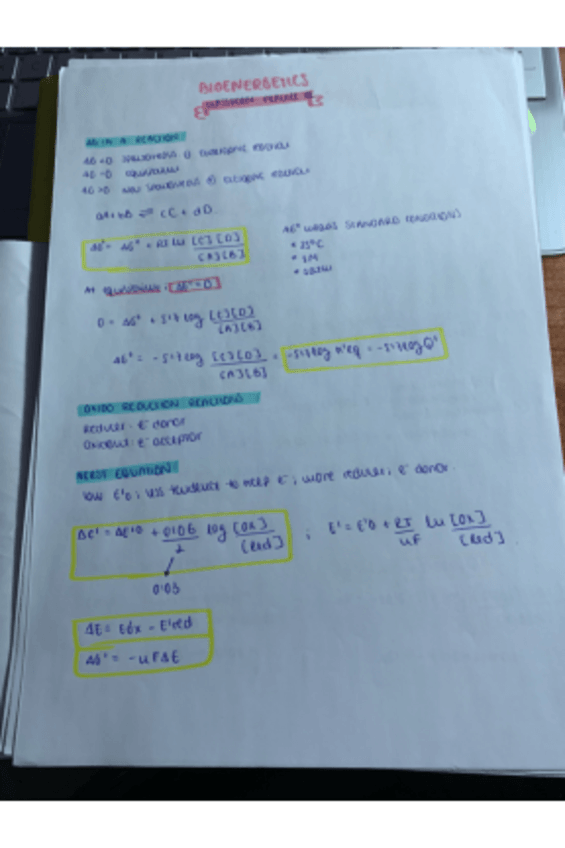 BIOENERGETICS
CLASSROOM PRACTICE
ΔG IN A REACTION
ΔG <0 SPONTANEOUS
ΔG =0 EQUILIBRIUM
ΔG >0 NON SPONTANEOUS
aA + bB ⇌ cC + dD
ΔG' = ΔG° + RT ln [C][D] / [A][B]
ΔG° MEANS STANDARD CONDITIONS
* 25°C
* 1M
At equilibrium: ΔG' = 0
0 = ΔG° + 5'7 log [C][D] / [A][B]
ΔG° = -5'7 log [C][D] / [A][B] = -5'7 log K'eq = -5'7 log Q'
OXIDO REDUCTION REACTIONS
Reducer: e⁻ donor
Oxidant: e⁻ acceptor
NERST EQUATION
low E'0; less tendency to accept e⁻; more reducer; e⁻ donor.
ΔE' = ΔE'0 + 0'06 / 2 log [Ox] / [Red] ; E' = E'0 + RT / nF ln [Ox] / [Red]
0'03
ΔE = E'ox - E'red
ΔG' = -nFΔE